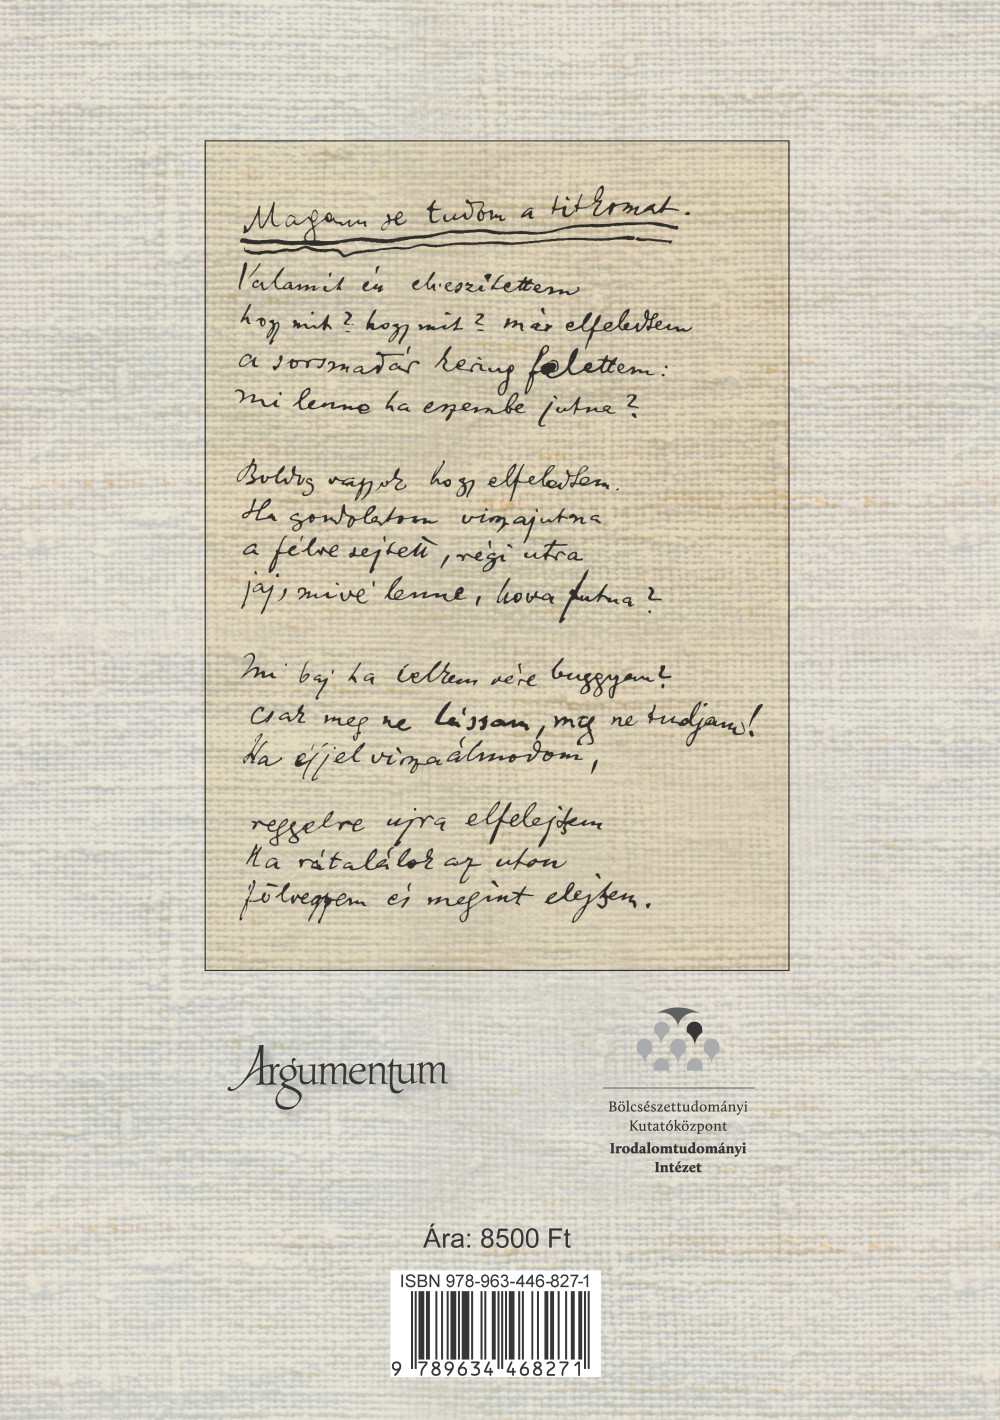 Magam se tudom a titkomat.
Valamit én elveszítettem
hogy mit? hogy mit? már elfeledtem
a sorsmadár kering felettem:
mi lenne ha eszembe jutna?
Boldog vagyok hogy elfeledtem.
Ha gondolatom visszajutna
a félve sejtett, régi utra
jaj, mivé lenne, hova futna?
Mi baj ha lelkem vére buggyan?
csak meg ne lássam, meg ne tudjam!
Ha éjjel visszaálmodom,
reggelre ujra elfelejtem
Ha rátalálok az uton
fölveszem és megint elejtem.
Argumentum
Bölcsészettudományi
Kutatóközpont
Irodalomtudományi
Intézet
Ára: 8500 Ft
ISBN 978-963-446-827-1
9 789634 468271